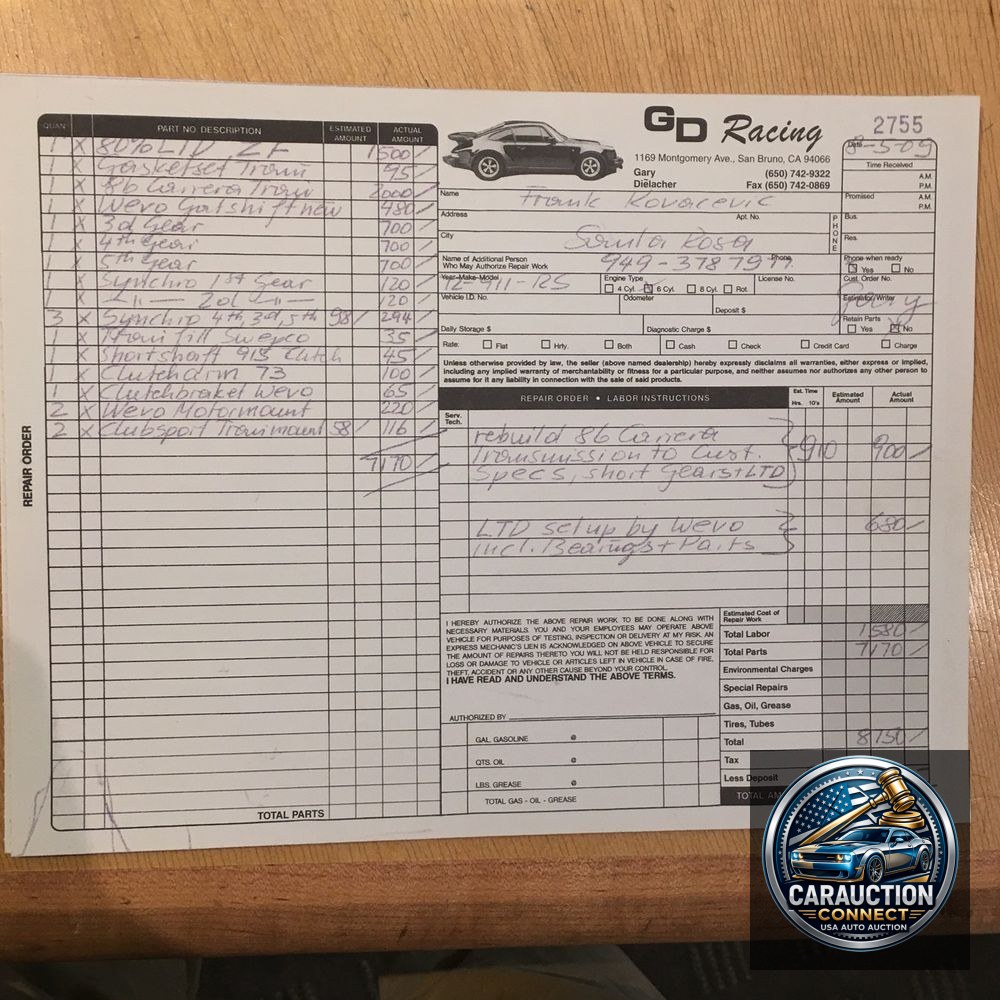 REPAIR ORDER
QUAN. PART NO. DESCRIPTION ESTIMATED AMOUNT ACTUAL AMOUNT
1 X 80% LTD ZF 1500/
1 X Gasketset Trani 95/
1 X 86 Carrera Trani 2000/
1 X Wevo Gatshift new 480/
1 X 3d Gear 700/
1 X 4th Gear 700/
1 X 5th Gear 700/
1 X Synchro 1st Gear 120/
1 X -"- 2d -"- 120/
3 X Synchro 4th, 3d, 5th 98/ 294/
1 X Trani fill Swepco 35/
1 X Shortshaft 915 Clutch 45/
1 X Clutcharm 73 100/
1 X Clutchbraket Wevo 65/
2 X Wevo Motormount 220/
2 X Clubsport Tranimount 58/ 116/
7170/
TOTAL PARTS
GD Racing
1169 Montgomery Ave., San Bruno, CA 94066
Gary (650) 742-9322
Dielacher Fax (650) 742-0869
2755
Date
Time Received
A.M.
P.M.
Promised A.M.
P.M.
Name Frank Kovacevic
Address Apt. No.
PHONE
Bus.
City Santa Rosa
Res.
Name of Additional Person
Who May Authorize Repair Work
Phone
Phone when ready
Yes No
Year-Make-Model 72-911-RS
Engine Type
4 Cyl. 6 Cyl. 8 Cyl. Rot.
License No.
Cust. Order No.
Vehicle I.D. No. Odometer Deposit $
Estimator/Writer Gary
Daily Storage $ Diagnostic Charge $
Retain Parts
Yes No
Rate: Flat Hrly. Both Cash Check Credit Card Charge
Unless otherwise provided by law, the seller (above named dealership) hereby expressly disclaims all warranties, either express or implied,
including any implied warranty of merchantability or fitness for a particular purpose, and neither assumes nor authorizes any other person to
assume for it any liability in connection with the sale of said products.
Serv. Tech. REPAIR ORDER • LABOR INSTRUCTIONS Est. Time Hrs. 10's Estimated Amount Actual Amount
rebuild 86 Carrera
Transmission to Cust. 900/
Specs, short Gears+LTD
LTD setup by Wevo 680/
incl. Bearings + Parts
I HEREBY AUTHORIZE THE ABOVE REPAIR WORK TO BE DONE ALONG WITH
NECESSARY MATERIALS. YOU AND YOUR EMPLOYEES MAY OPERATE ABOVE
VEHICLE FOR PURPOSES OF TESTING, INSPECTION OR DELIVERY AT MY RISK. AN
EXPRESS MECHANIC'S LIEN IS ACKNOWLEDGED ON ABOVE VEHICLE TO SECURE
THE AMOUNT OF REPAIRS THERETO YOU WILL NOT BE HELD RESPONSIBLE FOR
LOSS OR DAMAGE TO VEHICLE OR ARTICLES LEFT IN VEHICLE IN CASE OF FIRE,
THEFT, ACCIDENT OR ANY OTHER CAUSE BEYOND YOUR CONTROL.
I HAVE READ AND UNDERSTAND THE ABOVE TERMS.
AUTHORIZED BY
GAL. GASOLINE @
QTS. OIL @
LBS. GREASE @
TOTAL GAS - OIL - GREASE
Estimated Cost of Repair Work
Total Labor 1580/
Total Parts 7170/
Environmental Charges
Special Repairs
Gas, Oil, Grease
Tires, Tubes
Total 8750/
Tax
Less Deposit
CARAUCTION
CONNECT
USA AUTO AUCTION